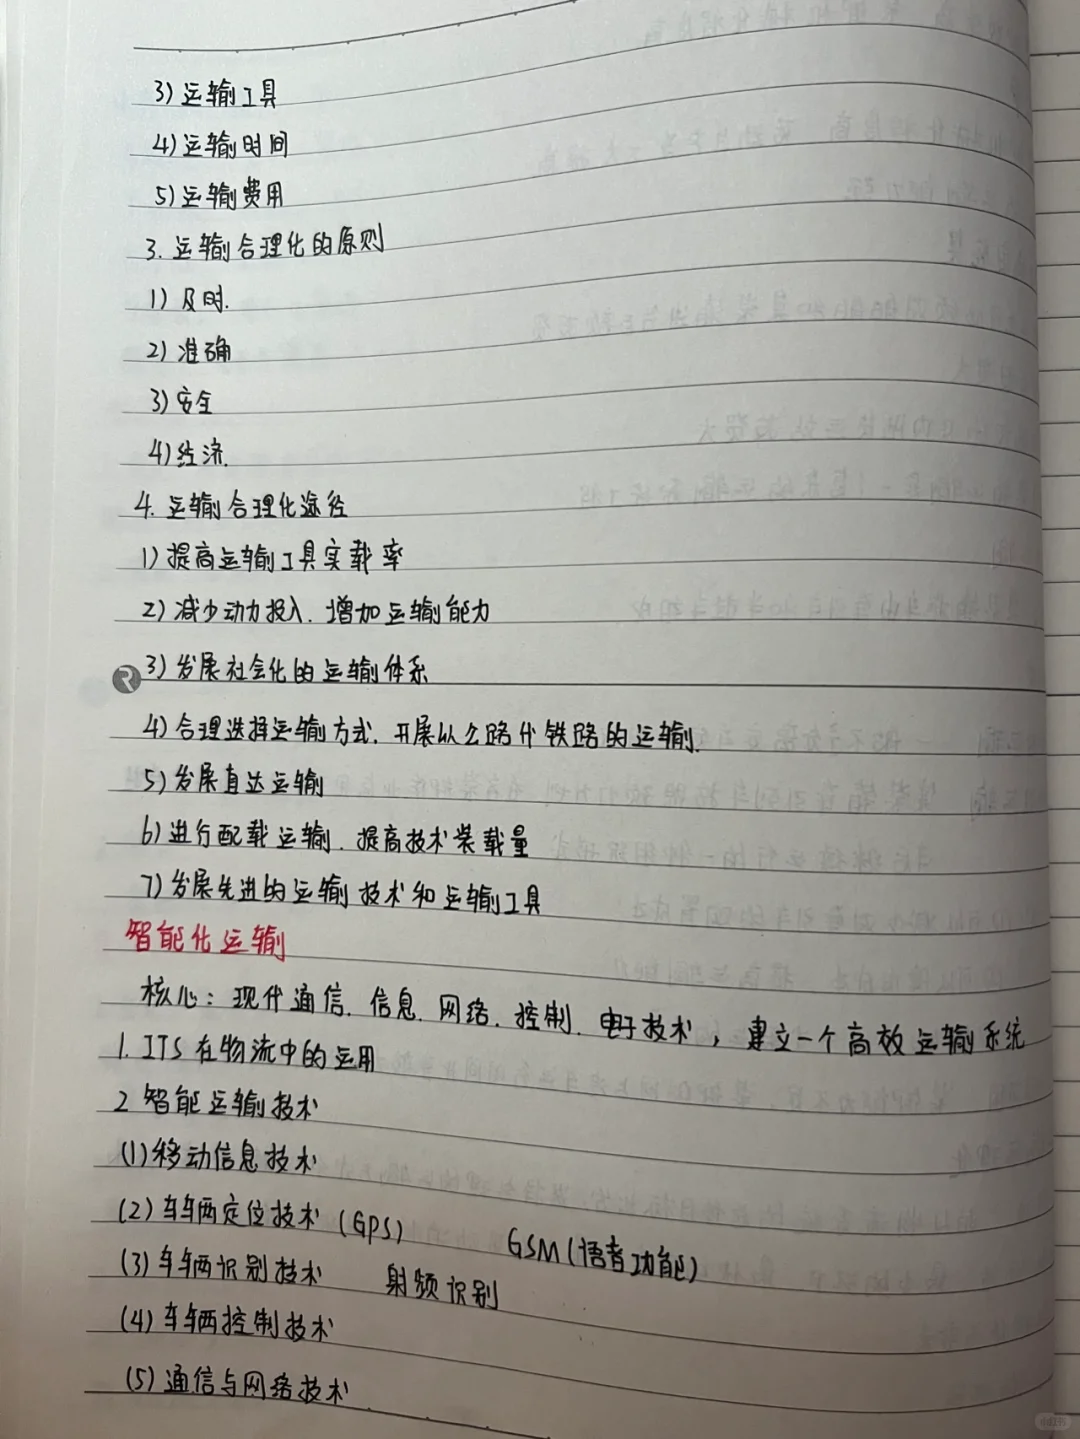 3)运输工具
4)运输时间
5)运输费用
3.运输合理化的原则
1)及时.
2)准确
3)安全
4)经济.
4.运输合理化途径
1)提高运输工具实载率
2)减少动力投入.增加运输能力
3)发展社会化的运输体系
4)合理选择运输方式.开展以公路代铁路的运输.
5)发展直达运输
6)进行配载运输.提高技术装载量
7)发展先进的运输技术和运输工具
智能化运输
核心:现代通信.信息.网络.控制.电子技术,建立一个高效运输系统
1.ITS在物流中的运用
2 智能运输技术
(1)移动信息技术
(2)车辆定位技术(GPS) GSM(语音功能)
(3)车辆识别技术 射频识别
(4)车辆控制技术
(5)通信与网络技术
小红书